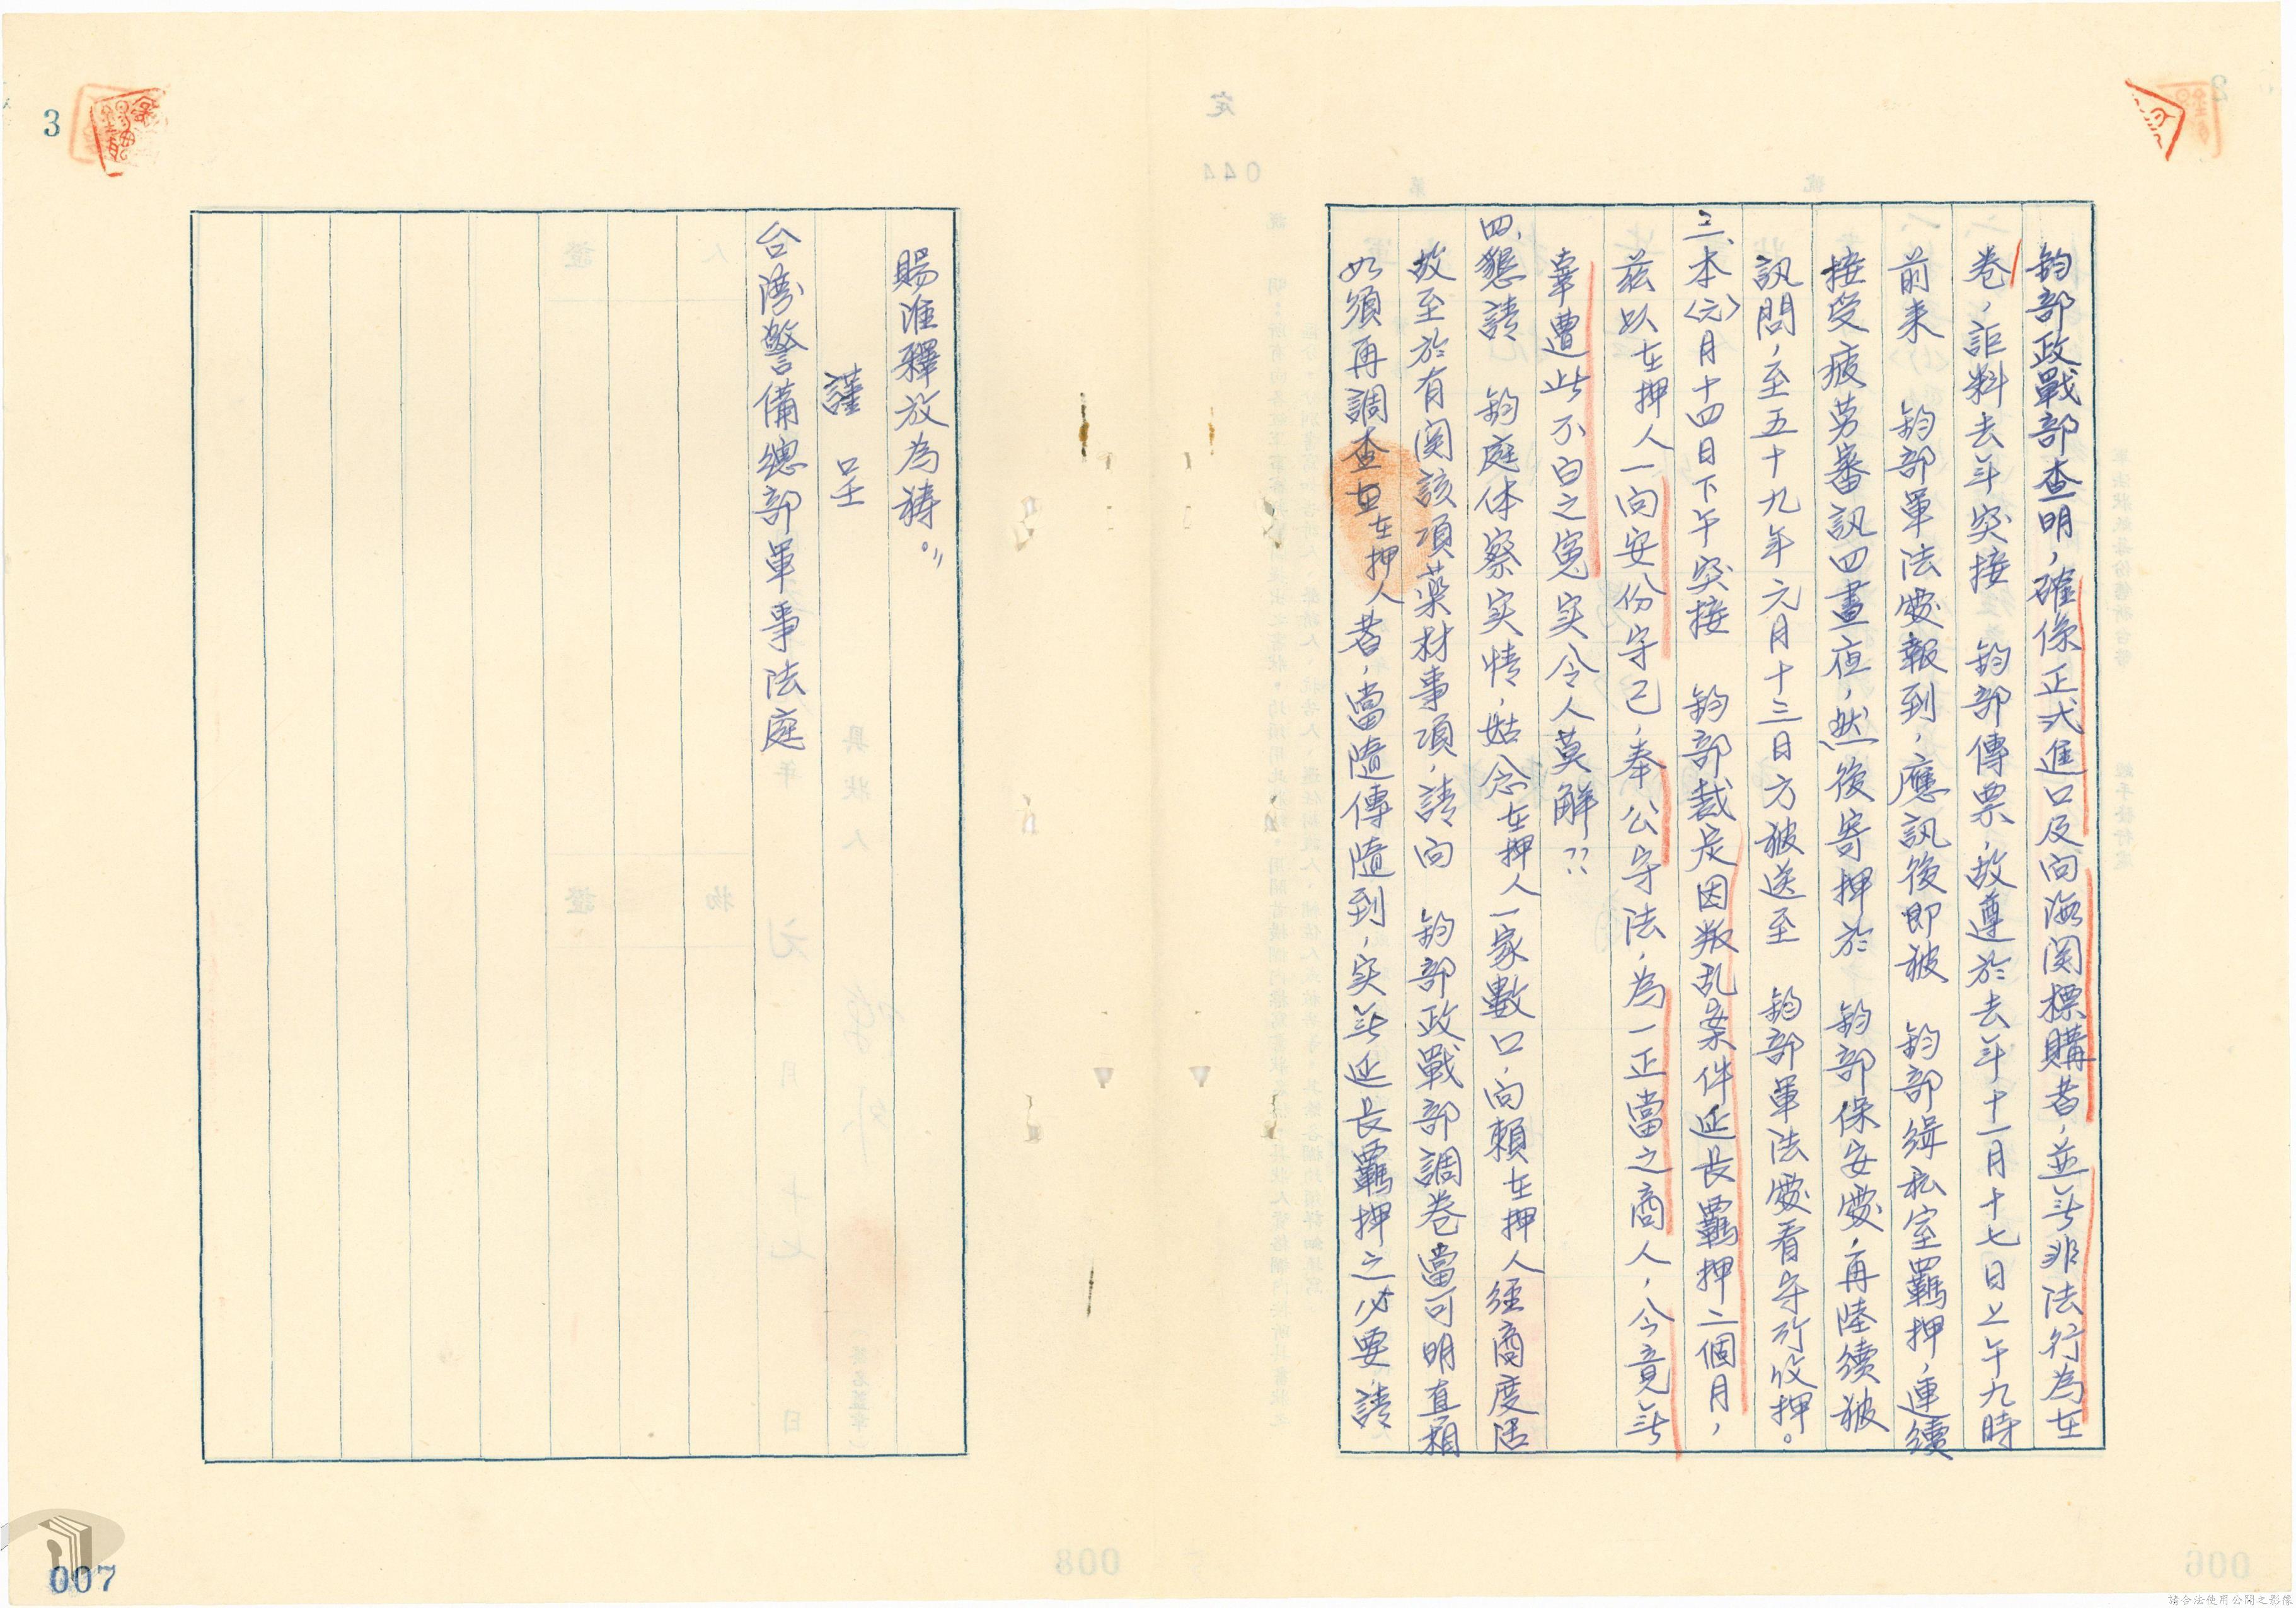 鈞部政戰部查明，確係正式進口及向海関標購者，並無非法行為在
卷，詎料去年突接　鈞部傳票，故遵於去年十一月十七日上午九時
前来　鈞部軍法處報到，應訊後即被　鈞部緝私室羈押，連續
接受疲労審訊四晝夜，然後寄押於　鈞部保安處，再陸續被
訊問，至五十九年元月十三日方被送至　鈞部軍法處看守所收押。
三、本〈元〉月十四日下午突接　鈞部裁定因叛乱案件延長羈押二個月，
茲以在押人一向安份守己，奉公守法，為一正當之商人，今竟無
辜遭此不白之冤实令人莫解??
四、懇請　鈞庭体察实情，姑念在押人一家數口，向賴在押人經商度活
故至於有関該項薬材事項，請向　鈞部政戰部調卷當可明真相
如須再調查在押人者，當隨傳隨到，实無延長羈押之必要，請
賜准釋放為禱。"
謹　呈
台湾警備總部軍事法庭
3
007
008
006
044
請合法使用公開之影像